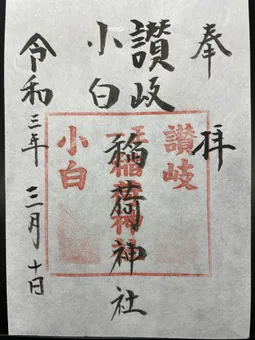 奉拝
讃岐
小白
稲荷神社
令和三年三月十日
讃岐
稲荷神
小白